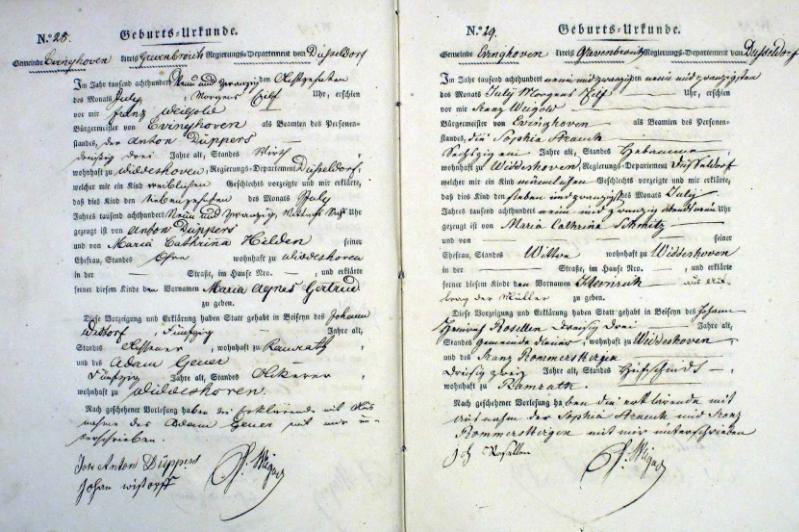 N.º 28. Geburts-Urkunde.
Gemeinde Evinghoven Kreis Grevenbroich Regierungs-Departement von Düsseldorf
Im Jahr tausend achthundert Neun und zwanzig den
des Monats July, Morgens Uhr, erschien
vor mir Franz
Bürgermeister von Evinghoven als Beamten des Personen-
standes, der Anton Düppers
dreißig drei Jahre alt, Standes Wirth
wohnhaft zu Widdeshoven, Regierungs-Departement Düsseldorf,
welcher mir ein Kind weiblichen Geschlechts vorzeigte und mir erklärte,
daß dies Kind den des Monats July
Jahres tausend achthundert Neun und zwanzig, Uhr
gezeugt ist von Anton Düppers
und von Maria Cathrina Hilden seiner
Ehefrau, Standes wohnhaft zu Widdeshoven
in der — Straße, im Hause Nro. — , und erklärte
ferner diesem Kinde den Vornamen Maria Agnes Gertrud
zu geben.
Diese Vorzeigung und Erklärung haben Statt gehabt in Beiseyn des Johann
Fünfzig Jahre alt,
Standes , wohnhaft zu Ramrath,
und des Adam Geuer
Fünfzig Jahre alt, Standes Ackerer
wohnhaft zu Widdeshoven.
Nach geschehener Vorlesung haben
nahme des Adam Geuer mit mir un-
terschrieben.
Anton Düppers
Johan
N.º 29. Geburts-Urkunde.
Gemeinde Evinghoven Kreis Grevenbroich Regierungs-Departement von Düsseldorf
Im Jahr tausend achthundert neun und zwanzig den neun und zwanzigsten
des Monats July Morgens Uhr, erschien
vor mir Franz
Bürgermeister von Evinghoven als Beamten des Personen-
standes, die Sophia Strauch
Sechszig Jahre alt, Standes Hebamme
wohnhaft zu Widdeshoven, Regierungs-Departement Düsseldorf
welcher mir ein Kind männlichen Geschlechts vorzeigte und mir erklärte,
daß dies Kind den sieben und zwanzigsten des Monats July
Jahres tausend achthundert neun und zwanzig Abends neun Uhr
gezeugt ist von Maria Cathrina Schmitz
und von — seiner
Ehefrau, Standes Wittwe wohnhaft zu Widdeshoven
in der — Straße, im Hause Nro. — , und erklärte
ferner diesem Kinde den Vornamen Henrich
der Mutter zu geben.
Diese Vorzeigung und Erklärung haben Statt gehabt in Beiseyn des Johann
Heinrich Rosellen dreißig drei Jahre alt,
Standes Gemeinde , wohnhaft zu Widdeshoven,
und des Franz Rommerskirchen
dreißig zwei Jahre alt, Standes —,
wohnhaft zu Ramrath.
Nach geschehener Vorlesung haben die mit
Ausnahme der Sophia Strauch und Franz
Rommerskirchen mit mir unterschrieben
Joh Rosellen